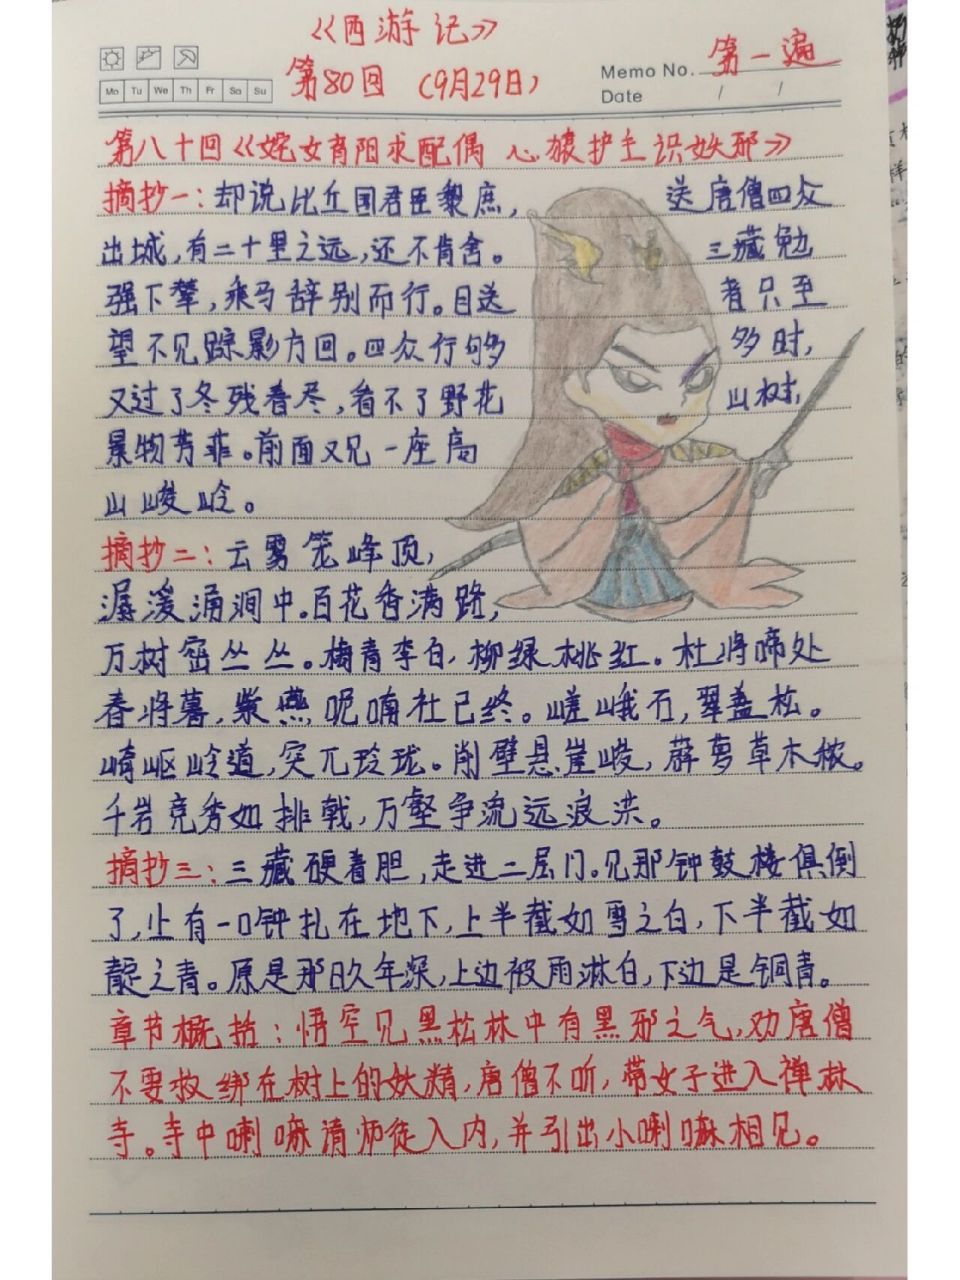 《西游记》
第80回 (9月29日)
Memo No. 第一遍
Mo Tu We Th Fr Sa Su
Date / /
第八十回《姹女育阳求配偶 心猿护主识妖邪》
摘抄一:却说比丘国君臣黎庶, 送唐僧四众
出城,有二十里之远,还不肯舍。 三藏勉
强下辇,乘马辞别而行。目送 者只至
望不见踪影方回。四众行够 多时,
又过了冬残春尽,看不了野花 山树,
景物芳菲。前面又见一座高
山峻岭。
摘抄二:云雾笼峰顶,
潺湲涌涧中。百花香满路,
万树密丛丛。梅青李白,柳绿桃红。杜鹃啼处
春将暮,紫燕呢喃社已终。嵯峨石,翠盖松。
崎岖岭道,突兀玲珑。削壁悬崖峻,薜萝草木秾。
千岩竞秀如排戟,万壑争流远浪洪。
摘抄三:三藏硬着胆,走进二层门。见那钟鼓楼俱倒
了,止有一口钟扎在地下,上半截如雪之白,下半截如
靛之青。原是那日久年深,上边被雨淋白,下边是铜青。
章节概括:悟空见黑松林中有黑邪之气,劝唐僧
不要救绑在树上的妖精,唐僧不听,带女子进入禅林
寺。寺中喇嘛请师徒入内,并引出小喇嘛相见。